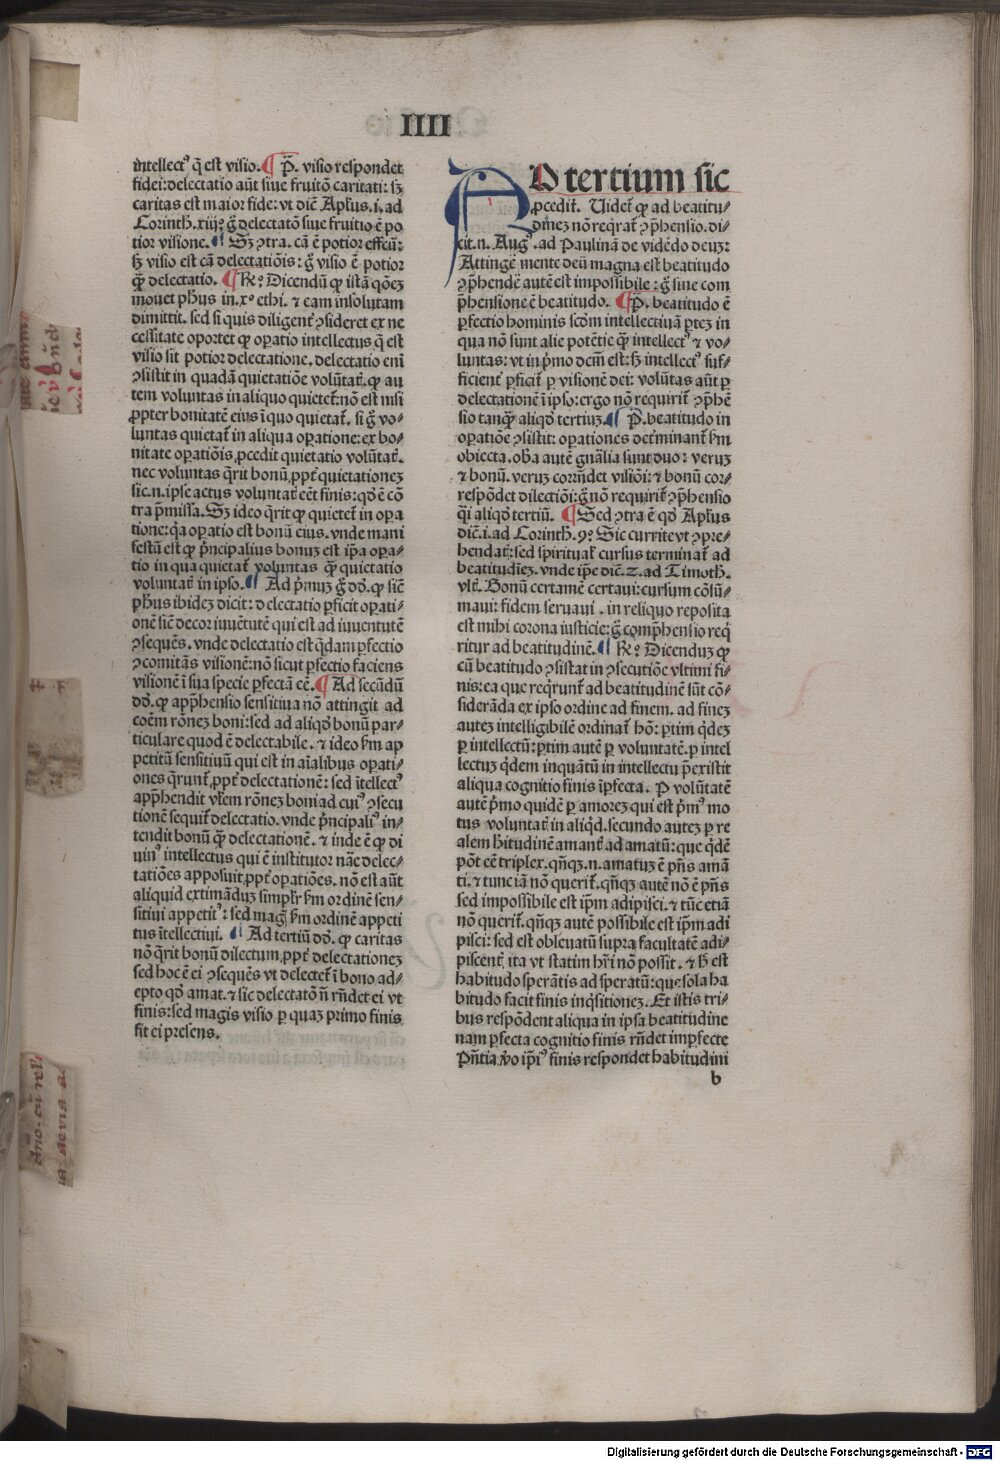 IIII
intellectꝰ q̃ est visio. ¶ P̃. visio respondet
fidei: delectatio aũt siue fruitõ caritati: sꝫ
caritas est maior fide: vt dic̃ Apl̃us. i. ad
Corinth. xiij? g̃ delectatõ siue fruitio ẽ po
tior visione. ¶ Sꝫ ꝯtra. cã ẽ potior effectũ:
sꝫ visio est cã delectatiõis: g̃ visio ẽ potior
q̃ȝ delectatio. ¶ R̃? Dicendũ ꝙ istã q̃oẽȝ
mouet ph̃us in. x? ethi. ⁊ eam insolutam
dimittit. sed si quis diligent̃ ꝯsideret ex ne
cessitate oportet ꝙ oꝑatio intellectus q̃ est
visio sit potior delectatione. delectatio eni
ꝯsistit in quadã quietatiõe volũtat̃. ꝙ au
tem voluntas in aliquo quietet̃: nõ est nisi
ꝓpter bonitatẽ eius ĩ quo quietat̃. si g̃ vo⸗
luntas quietat̃ in aliqua oꝑatione: ex bo⸗
nitate oꝑatiõis ꝓcedit quietatio volũtat̃.
nec voluntas q̃rit bonũ ꝓpt̃ quietationeȝ
sic. n. ipse actus voluntat̃ eẽt finis: qđ ẽ cõ
tra p̃missa. Sꝫ ideo q̃rit ꝙ quietet̃ in oꝑa
tione: q̃a oꝑatio est bonũ eius. vnde mani
festũ est ꝙ p̃ncipalius bonuȝ est ip̃a oꝑa⸗
tio in qua quietat̃ voluntas q̃ȝ quietatio
voluntat̃ in ipso. ¶ Ad p̃muȝ g̃ dđ. ꝙ sic̃
ph̃us ibideȝ dicit: delectatio ꝑficit oꝑati⸗
onẽ sic̃ decor iuuẽtutẽ qui est ad iuuentutẽ
ꝯsequẽs. vnde delectatio est q̃dam ꝑfectio
ꝯcomitãs visionẽ: nõ sicut ꝑfectio faciens
visionẽ ĩ sua specie ꝑfectã eẽ. ¶ Ad secũdũ
dđ. ꝙ app̃hensio sensitiua nõ attingit ad
coẽm rõneȝ boni: sed ad aliqđ bonũ par⸗
ticulare quod ẽ delectabile. ⁊ ideo ẜm ap
petitũ sensitiuũ qui est in aĩalibus oꝑati⸗
ones q̃runt̃ ꝓpt̃ delectationẽ: sed ĩtellectꝰ
app̃hendit vl̃em rõneȝ boni ad cuiꝰ ꝯsecu
tionẽ sequit̃ delectatio. vnde p̃ncipaliꝰ in⸗
tendit bonũ q̃ȝ delectationẽ. ⁊ inde ẽ ꝙ di
uinꝰ intellectus qui ẽ institutor nãe delec⸗
tatiões apposuit ꝓpt̃ oꝑatiões. nõ est aũt
aliquid extimãduȝ simpl̃r ẜm ordinẽ sen⸗
sitiui appetitꝰ: sed mag̃ ẜm ordinẽ appeti
tus ĩtellectiui. ¶ Ad tertiũ dđ. ꝙ caritas
nõ q̃rit bonũ dilectum ꝓpt̃ delectationeȝ
sed hoc ẽ ei ꝯsequẽs vt delectet̃ ĩ bono ad⸗
epto qđ amat. ⁊ sic delectatõ ñ rñdet ei vt
finis: sed magis visio ꝑ quaȝ primo finis
fit ei presens.
AD tertium sic
ꝓcedit̃. Videt̃ ꝙ ad beatitu⸗
dineȝ nõ req̃rat̃ ꝯp̃hensio. di⸗
cit. n. Augꝰ. ad Paulinã de vidẽdo deuȝ:
Attingẽ mente deũ magna est beatitudo
ꝯp̃hendẽ autẽ est impossibile: g̃ siue com
p̃hensione ẽ beatitudo. ¶ P̃. beatitudo ẽ
ꝑfectio hominis scđm intellectiuã ꝑteȝ in
qua nõ sunt alie potẽtie q̃ȝ intellectꝰ ⁊ vo⸗
luntas: vt in p̃mo dcm̃ est: sꝫ intellectꝰ suf⸗
ficient̃ ꝑficit̃ ꝑ visionẽ dei: volũtas aũt ꝑ
delectationẽ ĩ ipso: ergo nõ requirit̃ ꝯp̃hẽ
sio tanq̃ȝ aliqđ tertiuȝ. ¶ P̃. beatitudo in
oꝑatiõe ꝯsistit: oꝑationes det̃minant̃ ẜm
obiecta. ob̃a autẽ gñalia sunt duo: veruȝ
⁊ bonũ. veruȝ corrñdet visiõi: ⁊ bonũ cor⸗
respõdet dilectiõi: g̃ nõ requirit̃ ꝯp̃hensio
q̃i aliqđ tertiũ. ¶ Sed ꝯtra ẽ qđ Apl̃us
dic̃. i. ad Corinth. 9? Sic currite vt ꝯpre⸗
hendat̃: sed spiritual̃ cursus terminat̃ ad
beatitudieȝ. vnde ip̃e dic̃. 2. ad Timoth.
vlt̃. Bonũ certamẽ certaui: cursum cõsũ⸗
maui: fidem seruaui. in reliquo reposita
est mihi corona iusticie: g̃ comp̃hensio req̃
ritur ad beatitudinẽ. ¶ R̃? Dicenduȝ ꝙ
cũ beatitudo ꝯsistat in ꝯsecutiõe vltimi fi⸗
nis: ea que req̃runt̃ ad beatitudinẽ sũt cõ⸗
siderãda ex ipso ordine ad finem. ad fineȝ
auteȝ intelligibilẽ ordinat̃ hõ: ꝑtim q̃deȝ
ꝑ intellectũ: ꝑtim autẽ ꝑ voluntatẽ. ꝑ intel
lectuȝ q̃dem inquãtũ in intellectu p̃existit
aliqua cognitio finis ĩꝑfecta. P volũtatẽ
autẽ p̃mo quidẽ ꝑ amoreȝ qui est p̃mꝰ mo
tus voluntat̃ in aliq̃d. secundo auteȝ ꝑ re
alem h̃itudinẽ amant̃ ad amatũ: que q̃dẽ
põt eẽ triplex. qñqȝ. n. amatuȝ ẽ p̃ñs amã
ti. ⁊ tunc iã nõ querit̃. qñqȝ autẽ nõ ẽ p̃ñs
sed impossibile est ip̃m adipisci. ⁊ tũc etiã
nõ querit̃. qñqȝ autẽ possibile est ip̃m adi
pisci: sed est obleuatũ supra facultatẽ adi⸗
piscent̃ ita vt statim h̃ri nõ possit. ⁊ h̃ est
habitudo sperãtis ad speratũ: que sola ha
bitudo facit finis inq̃sitioneȝ. Et istis tri⸗
bus respõdent aliqua in ipsa beatitudine
nam ꝑfecta cognitio finis rñdet imꝑfecte
Pñtia ṽo ip̃iꝰ finis respondet habitudini
b
Digitalisierung gefördert durch die Deutsche Forschungsgemeinschaft - DFG